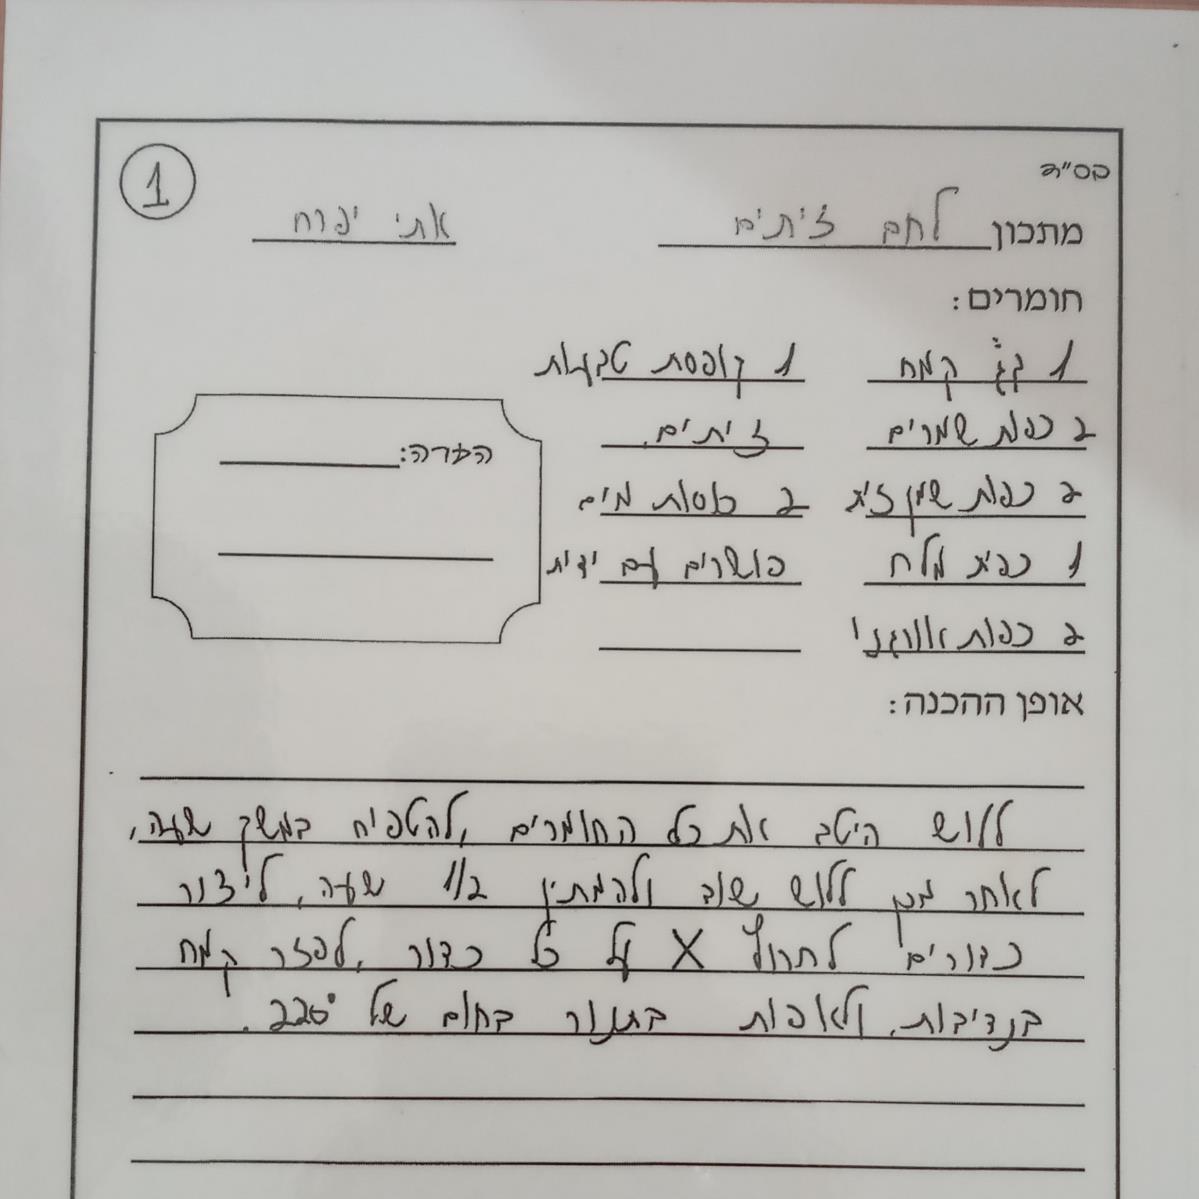 1
בס"ד
מתכון לחם זיתים אתי יפרח
חומרים:
1 קג קמח
2 כפות שמרים
2 כפות שמן זית
1 כפית מלח
2 כפות אורגנו
1 קופסת טבעות
זיתים.
2 כוסות מים
פושרים עם ידית
הערה:
אופן ההכנה:
ללוש היטב את כל החומרים, להטפיח במשך שעה,
לאחר מכן ללוש שוב ולהמתין 1/2 שעה, ליצור
כדורים לחרוץ X על כל כדור, לפזר קמח
בנדיבות, ולאפות בתנור בחום של 220°.